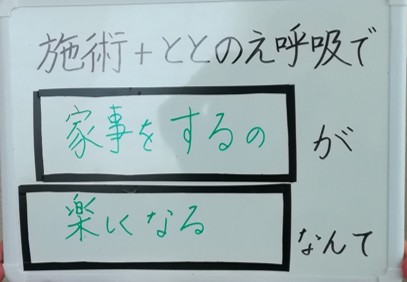 施術+ととのえ呼吸で
家事をするのが
楽しくなるなんて